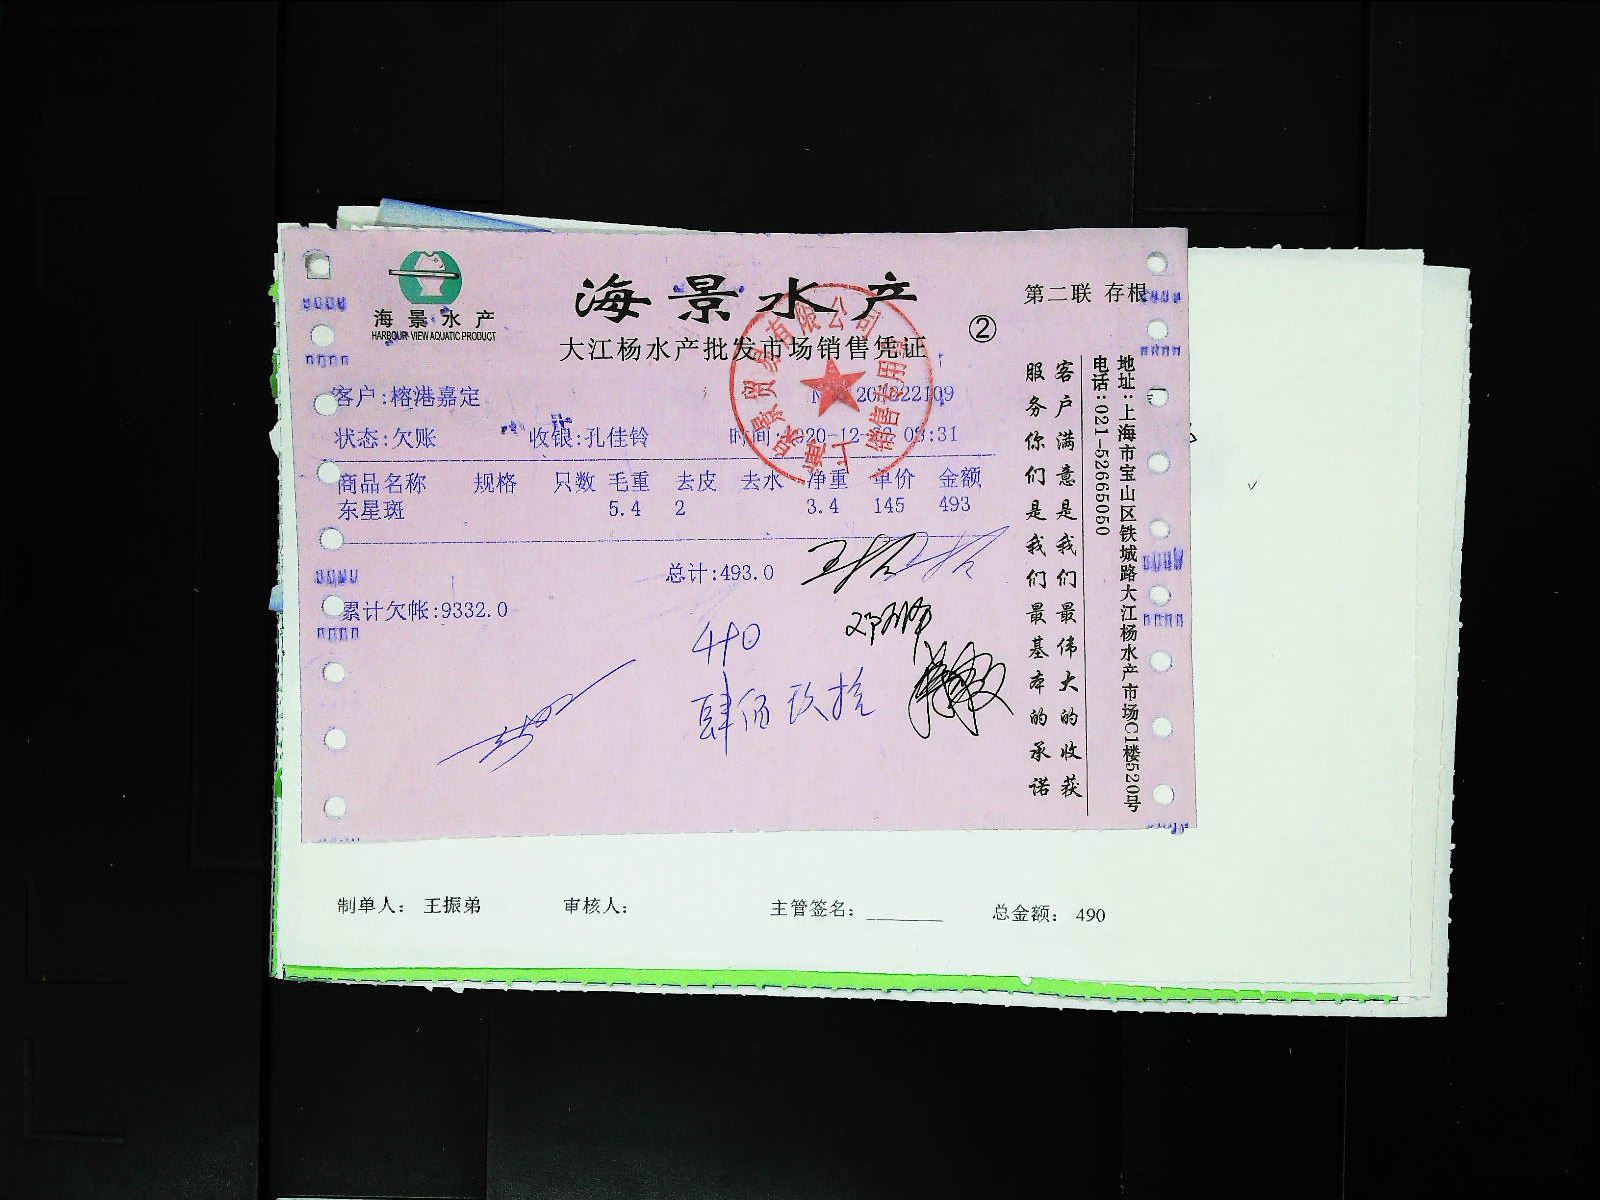 海景水产
HARBOUR VIEW AQUATIC PRODUCT
海景水产
大江杨水产批发市场销售凭证
②
第二联 存根
客户:榕港嘉定
状态:欠账 收银:孔佳铃 时间: 03:31
商品名称 规格 只数 毛重 去皮 去水 净重 单价 金额
东星斑 5.4 2 3.4 145 493
总计:493.0
累计欠帐:9332.0
肆佰玖拾
客户满意是我们最伟大的收获
服务你们是我们最基本的承诺
地址:上海市宝山区铁城路大江杨水产市场C1楼520号
电话:021-52665050
贸易有限公司
销售专用章
制单人: 王振弟 审核人: 主管签名: 总金额: 490